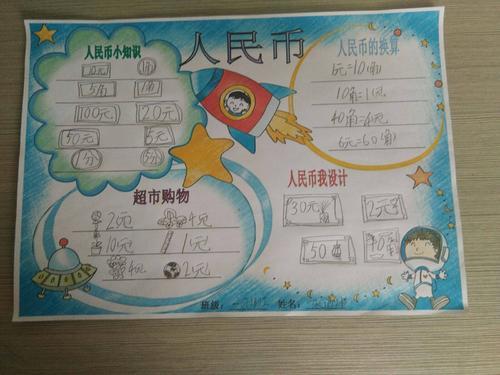 人民币
人民币小知识
10元 1角
5角 1角
100元 20元
50元 5元
1分 5分
人民币的换算
1元=10(角)
10角=1元
40角=4元
6元=60(角)
超市购物
2元 4元
10元 1元
4元 2元
人民币我设计
30元 2元
50
班级： 姓名：